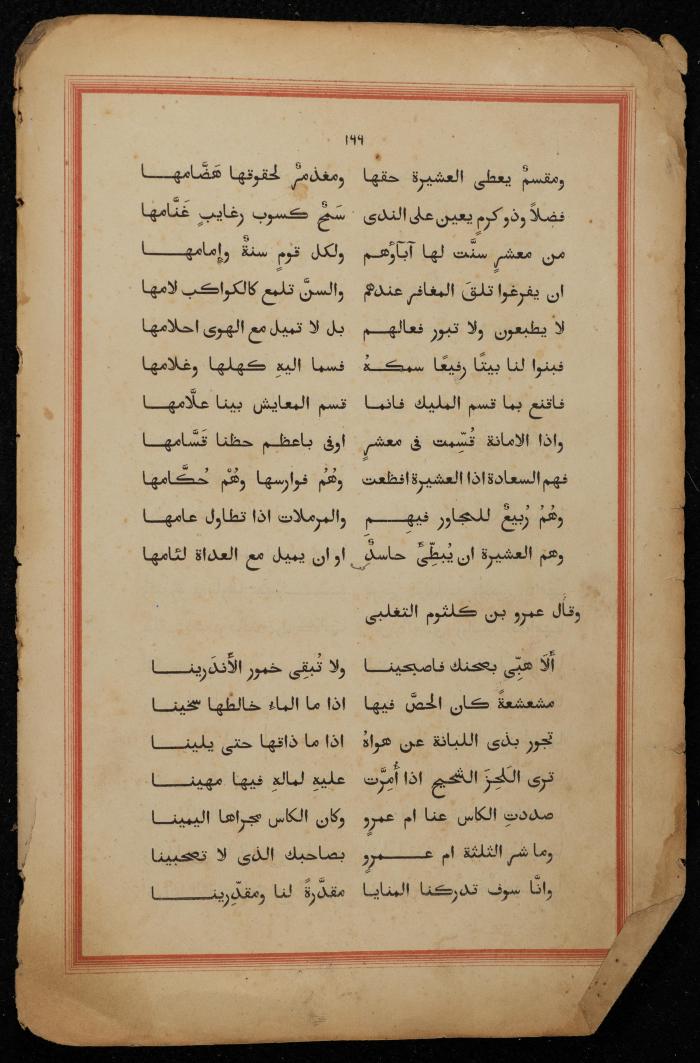 ١٦٦
ومقسمٌ يعطى العشيرة حقها ومغذمرٌ لحقوقها هَضَّامهـــا
فضلاً وذو كرمٍ يعين على الندى سَمْحٌ كسوب رغايبٍ غَنَّامها
من معشرٍ سنَّت لها آبآؤهم ولكل قومٍ سنةٌ وإمامهـــا
ان يفرغوا تلقَ المغافر عندهم والسنَّ تلمع كالكواكب لامها
لا يطبعون ولا تبور فعالهـم بل لا تميل مع الهوى احلامها
فبنوا لنا بيتًا رفيعًا سمكـهُ فسما اليهِ كهلها وغلامها
فاقنع بما قسم المليك فانما قسم المعايش بينا علَّامهـا
واذا الامانة قُسِّمت فى معشرٍ اوفى باعظم حظنا قَسَّامهـا
فهم السعادة اذا العشيرة افظعت وهُمُ فوارسها وهُمْ حُكَّامها
وهُمُ رُبيعٌ للمجاور فيهـمِ والمرملات اذا تطاول عامهـا
وهم العشيرة ان يُبطِّئَ حاسدٌ او ان يميل مع العداة لئامها
وقال عمرو بن كلثوم التغلبى
أَلَا هبِّى بصحنك فاصبحينـا ولا تُبقِى خمور الأَندَرينـــا
مشعشعةً كان الحصَّ فيها اذا ما الماءُ خالطها سخينا
تجور بذى اللبانة عن هواهُ اذا ما ذاقها حتى يلينـــا
ترى اللَحِزَ الشحيح اذا أُمِرَّت عليهِ لمالهِ فيها مهينـــا
صددتِ الكاس عنا ام عمروٍ وكان الكاس مجراها اليمينا
وما شر الثلثة ام عـــمروٍ بصاحبك الذى لا تصحبينا
وانَّا سوف تدركنا المنايا مقدَّرةً لنا ومقدِّرينـــا